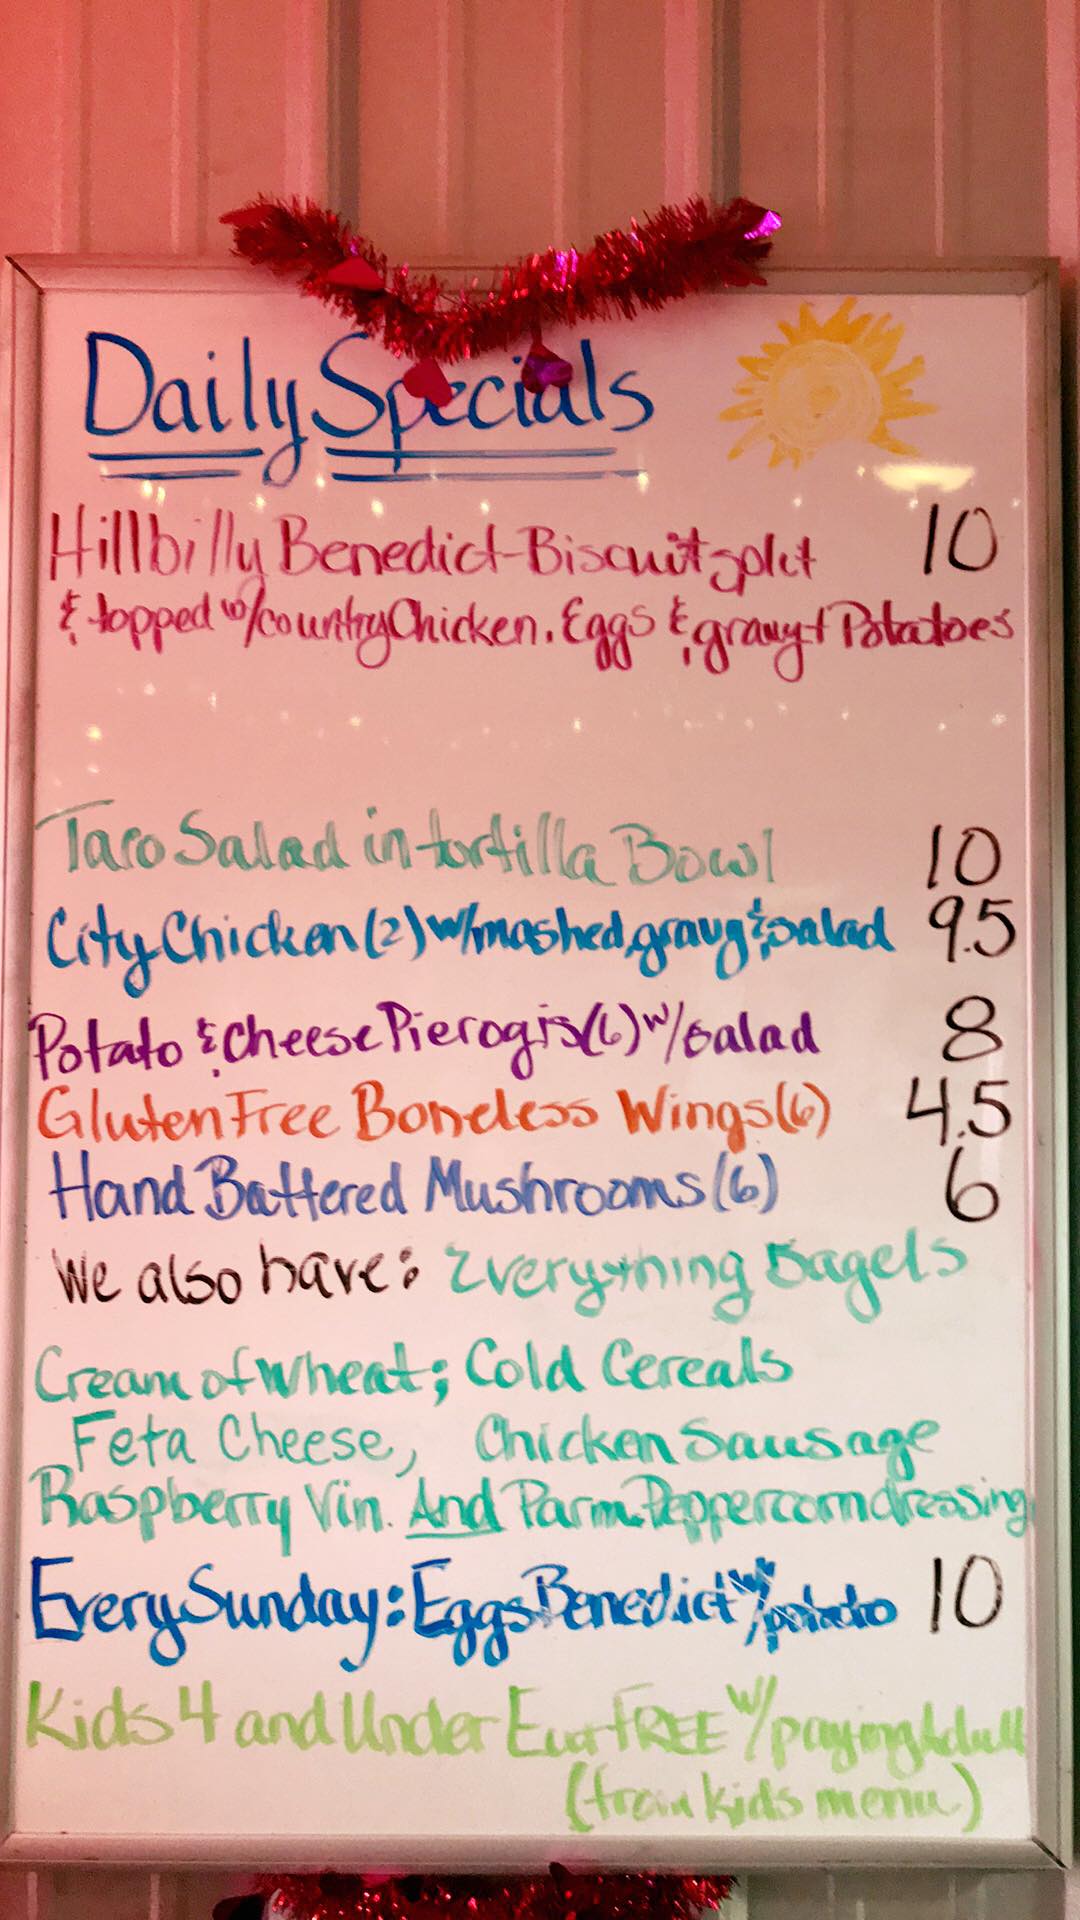 Daily Specials
Hillbilly Benedict-Biscuit split 10
& topped w/country Chicken. Eggs & gravy + Potatoes
Taco Salad in tortilla Bowl 10
City Chicken (2) w/mashed, gravy & salad 9.5
Potato & cheese Pierogis (6) w/salad 8
Gluten Free Boneless Wings (6) 4.5
Hand Battered Mushrooms (6) 6
We also have: Everything Bagels
Cream of Wheat; Cold Cereals
Feta Cheese, Chicken Sausage
Raspberry Vin. And Parm. Peppercorn dressing
Every Sunday: Eggs Benedict w/potato 10
Kids 4 and Under Eat FREE w/paying Adult
(from kids menu)